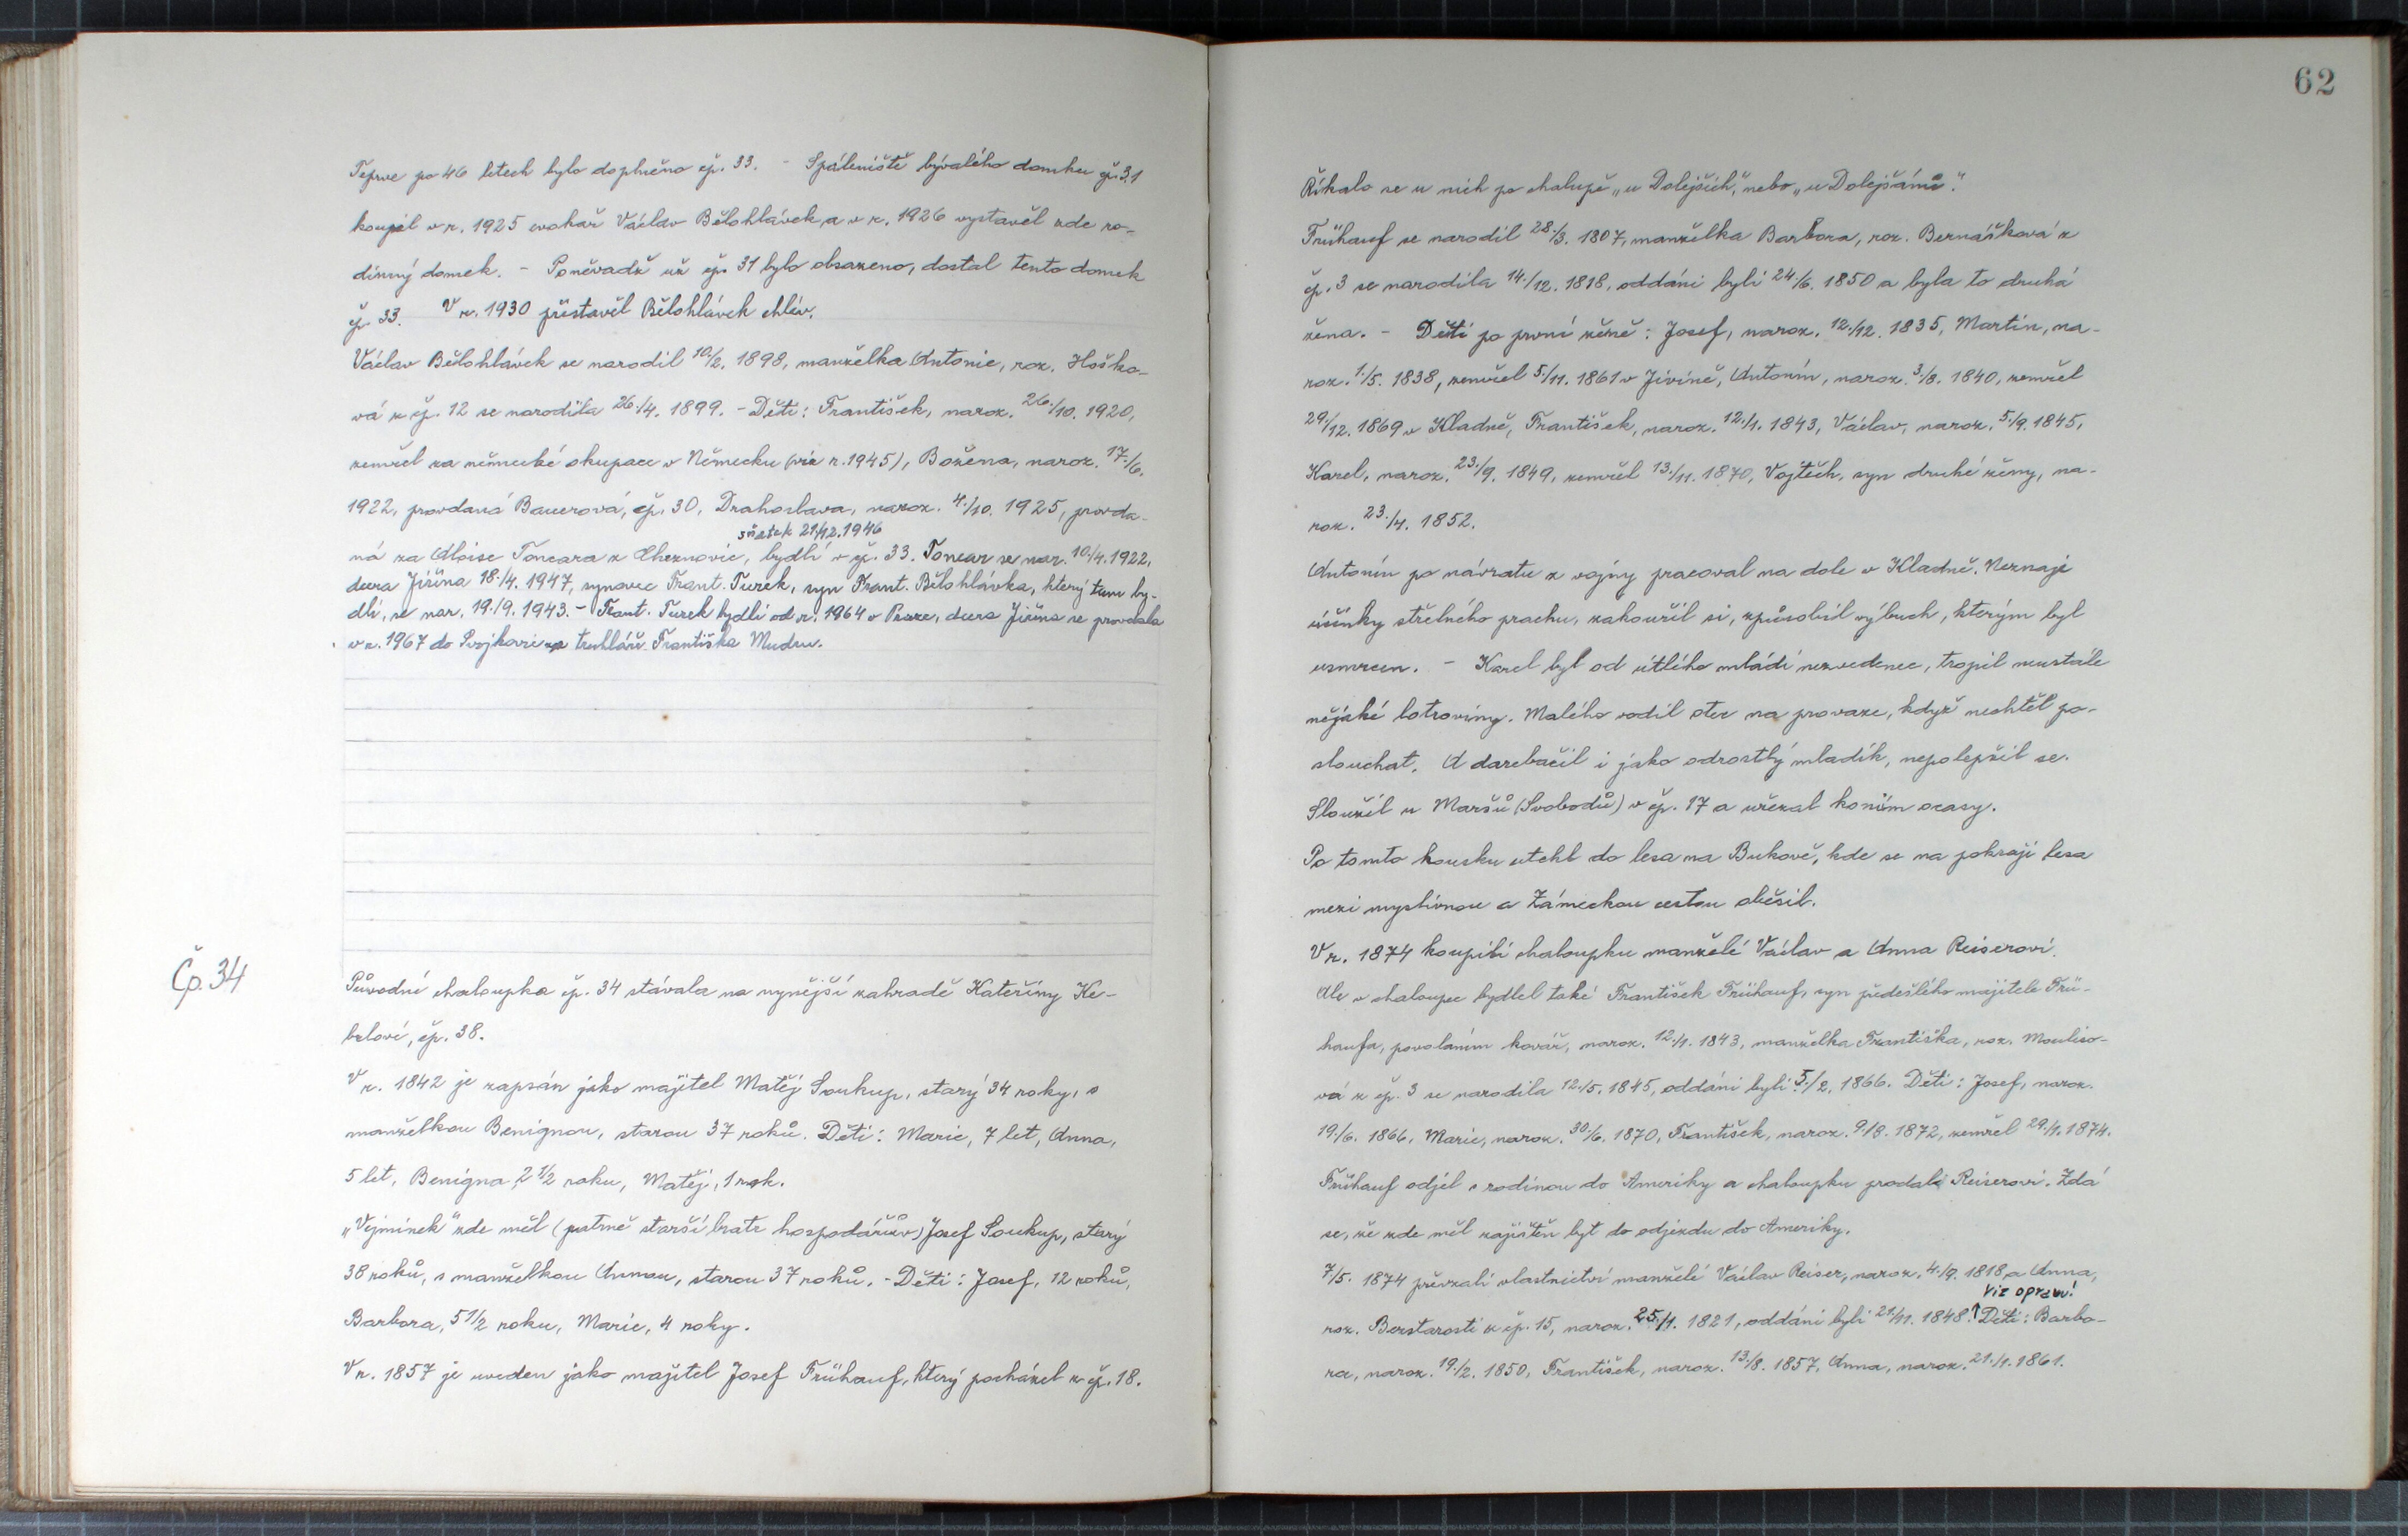 Teprve po 46 letech bylo doplněno čp. 33. - Spáleniště bývalého domku čp. 31
koupil v r. 1925 cvokař Václav Bělohlávek a v r. 1926 vystavěl zde ro-
dinný domek. - Poněvadž už čp. 31 bylo obsazeno, dostal tento domek
čp. 33. V r. 1930 přistavěl Bělohlávek chlév.
Václav Bělohlávek se narodil 10./2. 1898, manželka Antonie, roz. Hoško-
vá z čp. 12 se narodila 26./4. 1899. - Děti: František, naroz. 26./10. 1920,
zemřel za německé okupace v Německu (viz r. 1945), Božena, naroz. 17./6.
1922, provdaná Bauerová, čp. 30, Drahoslava, naroz. 4./10. 1925, provda-
sňatek 21/12.1946
ná za Aloise Toncara z Cheznovic, bydlí v čp. 33. Toncar se nar. 10./4. 1922,
dcera Jiřina 18./4. 1947, synovec Frant. Turek, syn Frant. Bělohlávka, který tam by-
dlí, se nar. 19./9. 1943. - Frant. Turek bydlí od r. 1964 v Praze, dcera Jiřina se provdala
v r. 1967 do Svojkovic za truhláře Františka Mudru.
Čp. 34
Původní chaloupka čp. 34 stávala na nynější zahradě Kateřiny Ke-
brlové, čp. 38.
V r. 1842 je zapsán jako majitel Matěj Soukup, starý 34 roky, s
manželkou Benignou, starou 37 roků. Děti: Marie, 7 let, Anna,
5 let, Benigna, 2 1/2 roku, Matěj, 1 rok.
„Vejminek" zde měl (patrně starší bratr hospodářův) Josef Soukup, starý
38 roků, s manželkou Annou, starou 37 roků. - Děti: Josef, 12 roků,
Barbora, 5 1/2 roku, Marie, 4 roky.
V r. 1857 je uveden jako majitel Josef Frühauf, který pocházel z čp. 18.
62
Říkalo se u nich po chalupě „u Dolejších," nebo „u Dolejšámů".
Frühauf se narodil 28./3. 1807, manželka Barbora, roz. Bernášková z
čp. 3 se narodila 14./12. 1818, oddáni byli 24./6. 1850 a byla to druhá
žena. - Děti po první ženě: Josef, naroz. 12./12. 1835, Martin, na-
roz. 1./5. 1838, zemřel 5./11. 1861 v Jivině, Antonín, naroz. 3./8. 1840, zemřel
29./12. 1869 v Kladně, František, naroz. 12./1. 1843, Václav, naroz. 5./9. 1845,
Karel, naroz. 23./9. 1849, zemřel 13./11. 1870, Vojtěch, syn druhé ženy, na-
roz. 23./4. 1852.
Antonín po návratu z vojny pracoval na dole v Kladně. Neznaje
účinky střelného prachu, zakouřil si, způsobil výbuch, kterým byl
usmrcen. - Karel byl od útlého mládí nezvedenec, tropil neustále
nějaké lotroviny. Malého vodil otec na provaze, když nechtěl po-
slouchat. A darebačil i jako odrostlý mladík, nepolepšil se.
Sloužil u Maršů (Svobodů) v čp. 17 a uřezal koním ocasy.
Po tomto kousku utekl do lesa na Bukově, kde se na pokraji lesa
mezi myslivnou a Zámeckou cestou oběsil.
V r. 1874 koupili chaloupku manželé Václav a Anna Reiserovi.
Ale v chaloupce bydlel také František Frühauf, syn předešlého majitele Frü-
haufa, povoláním kovář, naroz. 12./1. 1843, manželka Františka, roz. Mouliso-
vá z čp. 3 se narodila 12./5. 1845, oddáni byli 5./2. 1866. Děti: Josef, naroz.
19./6. 1866, Marie, naroz. 30./6. 1870, František, naroz. 9./8. 1872, zemřel 29./1. 1874.
Frühauf odjel s rodinou do Ameriky a chaloupku prodali Reiserovi. Zdá
se, že zde měl zajištěn byt do odjezdu do Ameriky.
7/5. 1874 převzali vlastnictví manželé Václav Reiser, naroz. 4./9. 1818 a Anna,
Viz opravu!
roz. Berstarosti z čp. 15, naroz. 25./1. 1821, oddáni byli 21./11. 1848.↑ Děti: Barbo-
ra, naroz. 19./2. 1850, František, naroz. 13./8. 1857, Anna, naroz. 21./1. 1861.